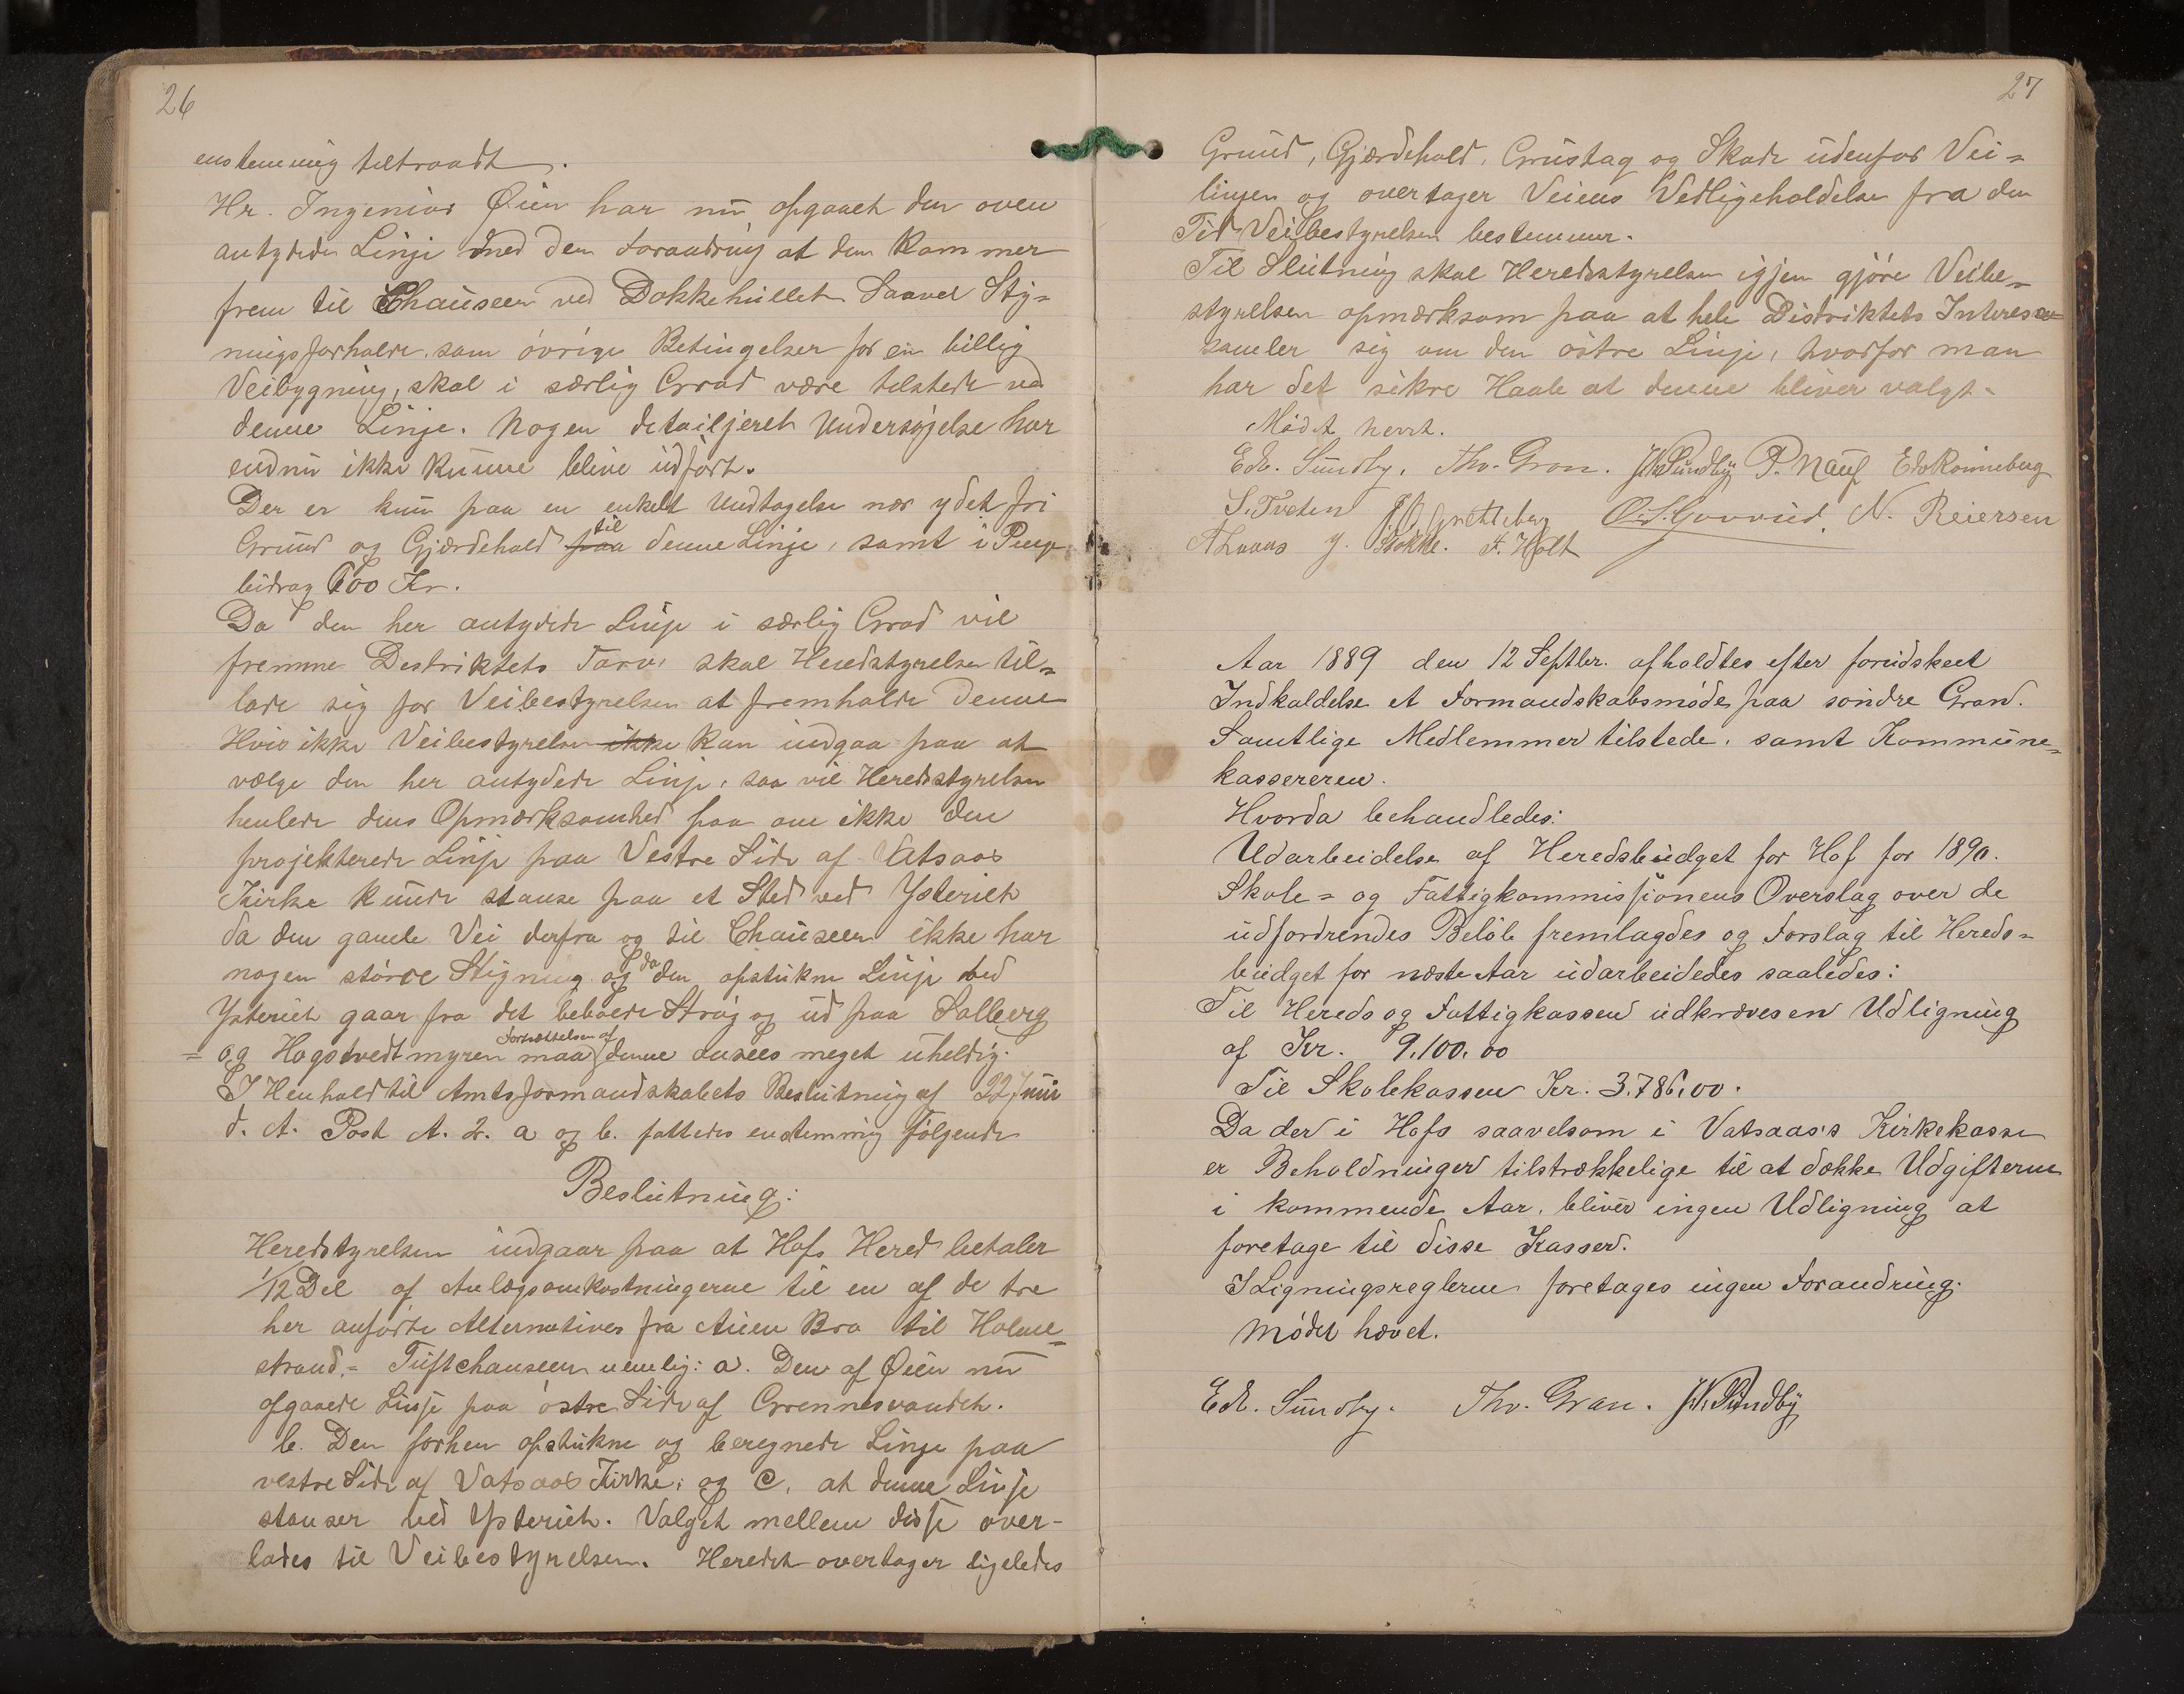 26
enstemmig tiltraadt.
Hr. Ingeniør Øien har nu opgaaet den oven
antydede Linje med den Forandring at den kommer
frem til Chauseen ved Dokkehullet Saavel Stig=
ningsforholde, som øvrige Betingelser for en billig
Veibygning, skal i særlig Grad være tilstede ved
denne Linje. Nogen detailjeret Undersøgelse har
endnu ikke kunne blive udført.
Der er kun paa en enkelt Undtagelse nær ydet fri
Grund og Gjærdehold paa til denne Linje, samt i Penge
bidrag 600 Kr.
Da den her antydede Linje i særlig Grad vil
fremme Destriktets Tarv, skal Heredstyrelsen til=
lade sig for Veibestyrelsen at fremholde denne
Hvis ikke Veibestyrelsen ikke kan indgaa paa at
vælge den her antydede Linje, saa vil Heredsstyrelsen
henlede dens Opmærksomhed paa om ikke den
projekterede Linje paa Vestre Side af Vatsaas
Kirke kunde stanse paa et Sted ved Ysteriet
da den gamle Vei derfra og til Chauseen ikke har
nogen større Stigning og da den opstukne Linje ved
Ysteriet gaar fra det beboede Strøg og ud paa Solberg
= og Hogstvedtmyren maa Fortsættelsen af denne ansees meget uheldig.
I Henhold til Amtsformandskabets Beslutning af 22 Juni
d. A. Post A. 2. a og b. fattedes enstemmig følgende
Beslutning:
Heredstyrelsen indgaar paa at Hofs Hered betaler
1/12 Del af Anlægsomkostningerne til en af de tre
her anførte Alternativer fra Auen Bro til Holme=
strand.= Tuftchauseen nemlig: a. Den af Øien nu
opgaaede Linje paa østre Side af Grennesvandet.
b. Den forhen opstukne og beregnede Linje paa
vestre Side af Vatsaas Kirke; og C, at denne Linje
stanser ved Ysteriet. Valget mellem disse over-
lades til Veibestyrelsen. Heredet overtager ligeledes
27
Grund, Gjærdehold, Grustag og Skade udenfor Vei=
linjen og overtager Veiens Vedligeholdelse fra den
Tid Veibestyrelsen bestemmer.
Til Slutning skal Heredsstyrelsen igjen gjøre Veibe=
styrelsen opmærksom paa at hele Distriktets Interesse
samler sig om den østre Linje, hvorfor man
har det sikre Haab at denne bliver valgt.
Mødet hævet.
Edv. Sundby. Thv. Gran. J.N. Sundby P. Nauf Edv Ronneberg
S. Tveten O.S. Govrud. N. Reiersen
A Laaas J. Stokke. F. Holt
Aar 1889 den 12 Septbr. afholdtes efter forudskeet
Indkaldelse et Formandskabsmøde paa søndre Gran.
Samtlige Medlemmer tilstede, samt Kommune=
kassereren.
Hvorda behandledes:
Udarbeidelse af Heredsbudget for Hof for 1890.
Skole= og Fattigkommissionens Overslag over de
udfordrendes Beløb fremlagdes og Forslag til Hereds=
budget for næste Aar udarbeidedes saaledes:
Til Hereds og Fattigkassen udkræves en Udligning
af Kr. 9.100.00
Til Skolekassen Kr. 3.786.00.
Da der i Hofs saavelsom i Vatsaas's Kirkekasse
er Beholdninger tilstrækkelige til at dække Udgifterne
i kommende Aar, bliver ingen Udligning at
foretage til disse Kasser.
I Ligningsreglerne foretages ingen Forandring.
Mødet hævet.
Edv. Sundby. Thv. Gran. J.N. Sundby